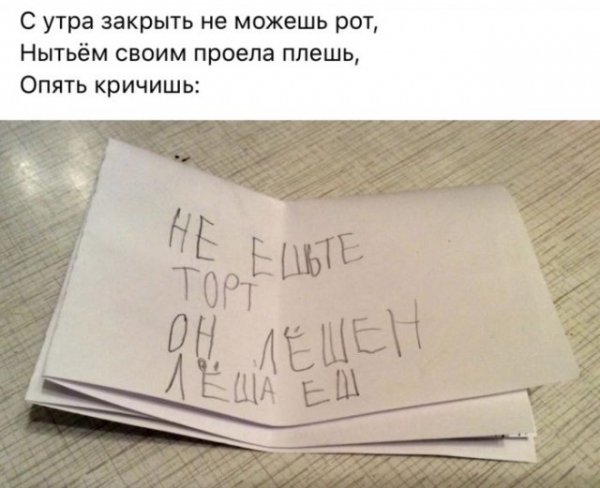 С утра закрыть не можешь рот,
Нытьём своим проела плешь,
Опять кричишь:
НЕ ЕШЬТЕ
ТОРТ
ОН ЛЁШЕН
ЛЁША ЕШ